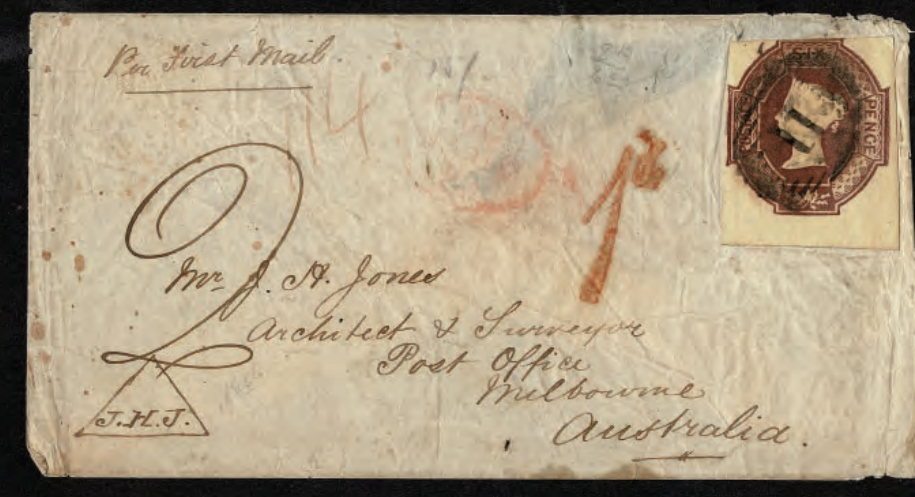 Per First Mail
114
SIX
PENCE
1d
2
Mr J. H. Jones
Architect & Surveyor
Post Office
Melbourne
Australia.
J.H.J.